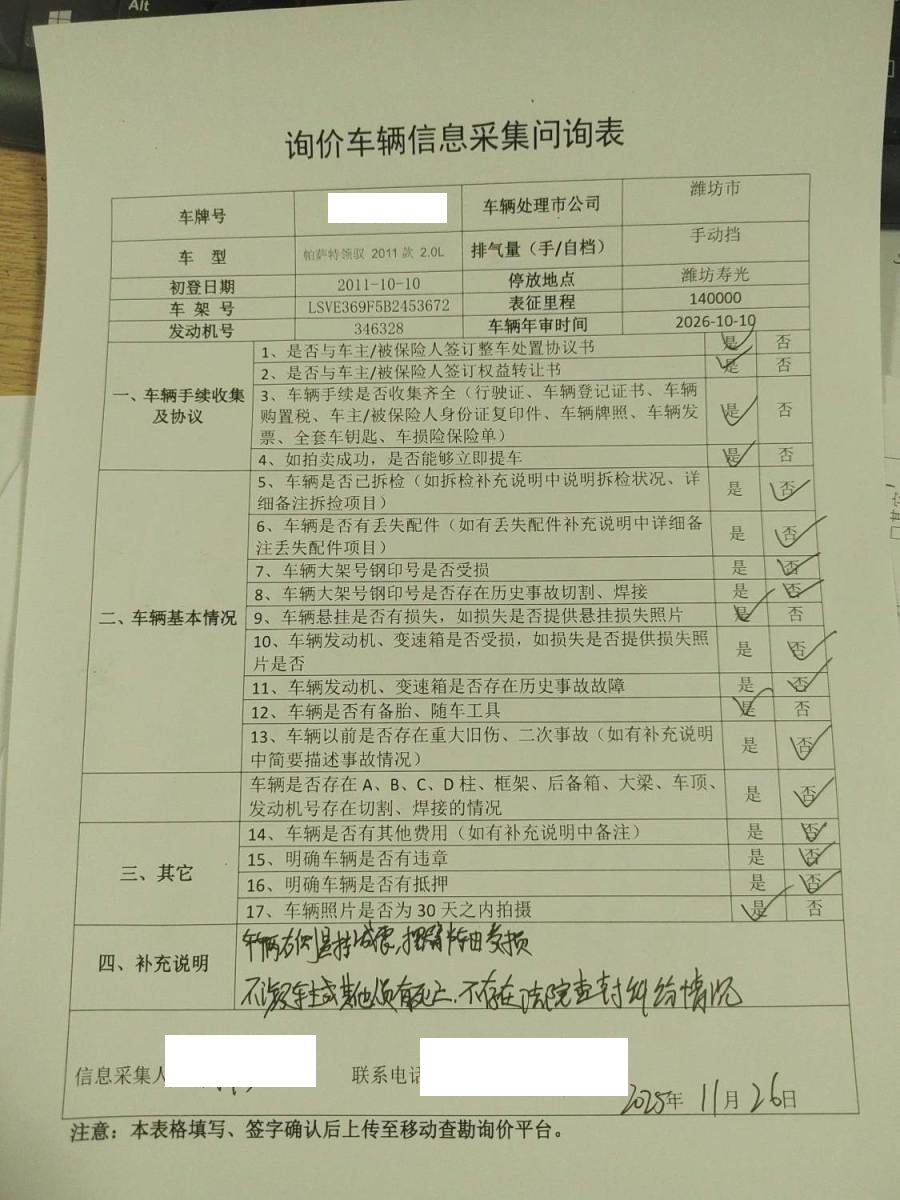 Alt
询价车辆信息采集问询表
车牌号 车辆处理市公司 潍坊市
车 型 帕萨特领驭 2011 款 2.0L 排气量（手/自档） 手动挡
初登日期 2011-10-10 停放地点 潍坊寿光
车 架 号 LSVE369F5B2453672 表征里程 140000
发动机号 346328 车辆年审时间 2026-10-10
一、车辆手续收集及协议
1、是否与车主/被保险人签订整车处置协议书 是 否
2、是否与车主/被保险人签订权益转让书 是 否
3、车辆手续是否收集齐全（行驶证、车辆登记证书、车辆
购置税、车主/被保险人身份证复印件、车辆牌照、车辆发 是 否
票、全套车钥匙、车损险保险单）
4、如拍卖成功，是否能够立即提车 是 否
二、车辆基本情况
5、车辆是否已拆检（如拆检补充说明中说明拆检状况、详
细备注拆检项目） 是 否
6、车辆是否有丢失配件（如有丢失配件补充说明中详细备
注丢失配件项目） 是 否
7、车辆大架号钢印号是否受损 是 否
8、车辆大架号钢印号是否存在历史事故切割、焊接 是 否
9、车辆悬挂是否有损失，如损失是否提供悬挂损失照片 是 否
10、车辆发动机、变速箱是否受损，如损失是否提供损失照
片是否 是 否
11、车辆发动机、变速箱是否存在历史事故故障 是 否
12、车辆是否有备胎、随车工具 是 否
13、车辆以前是否存在重大旧伤、二次事故（如有补充说明
中简要描述事故情况） 是 否
车辆是否存在 A、B、C、D 柱、框架、后备箱、大梁、车顶、
发动机号存在切割、焊接的情况 是 否
三、其它
14、车辆是否有其他费用（如有补充说明中备注） 是 否
15、明确车辆是否有违章 是 否
16、明确车辆是否有抵押 是 否
17、车辆照片是否为 30 天之内拍摄 是 否
四、补充说明
车辆右侧悬挂 半轴受损
不涉及车主或其他人员有死亡.不存在法院查封纠纷情况
信息采集人 联系电话
2025年 11月 26日
注意：本表格填写、签字确认后上传至移动查勘询价平台。